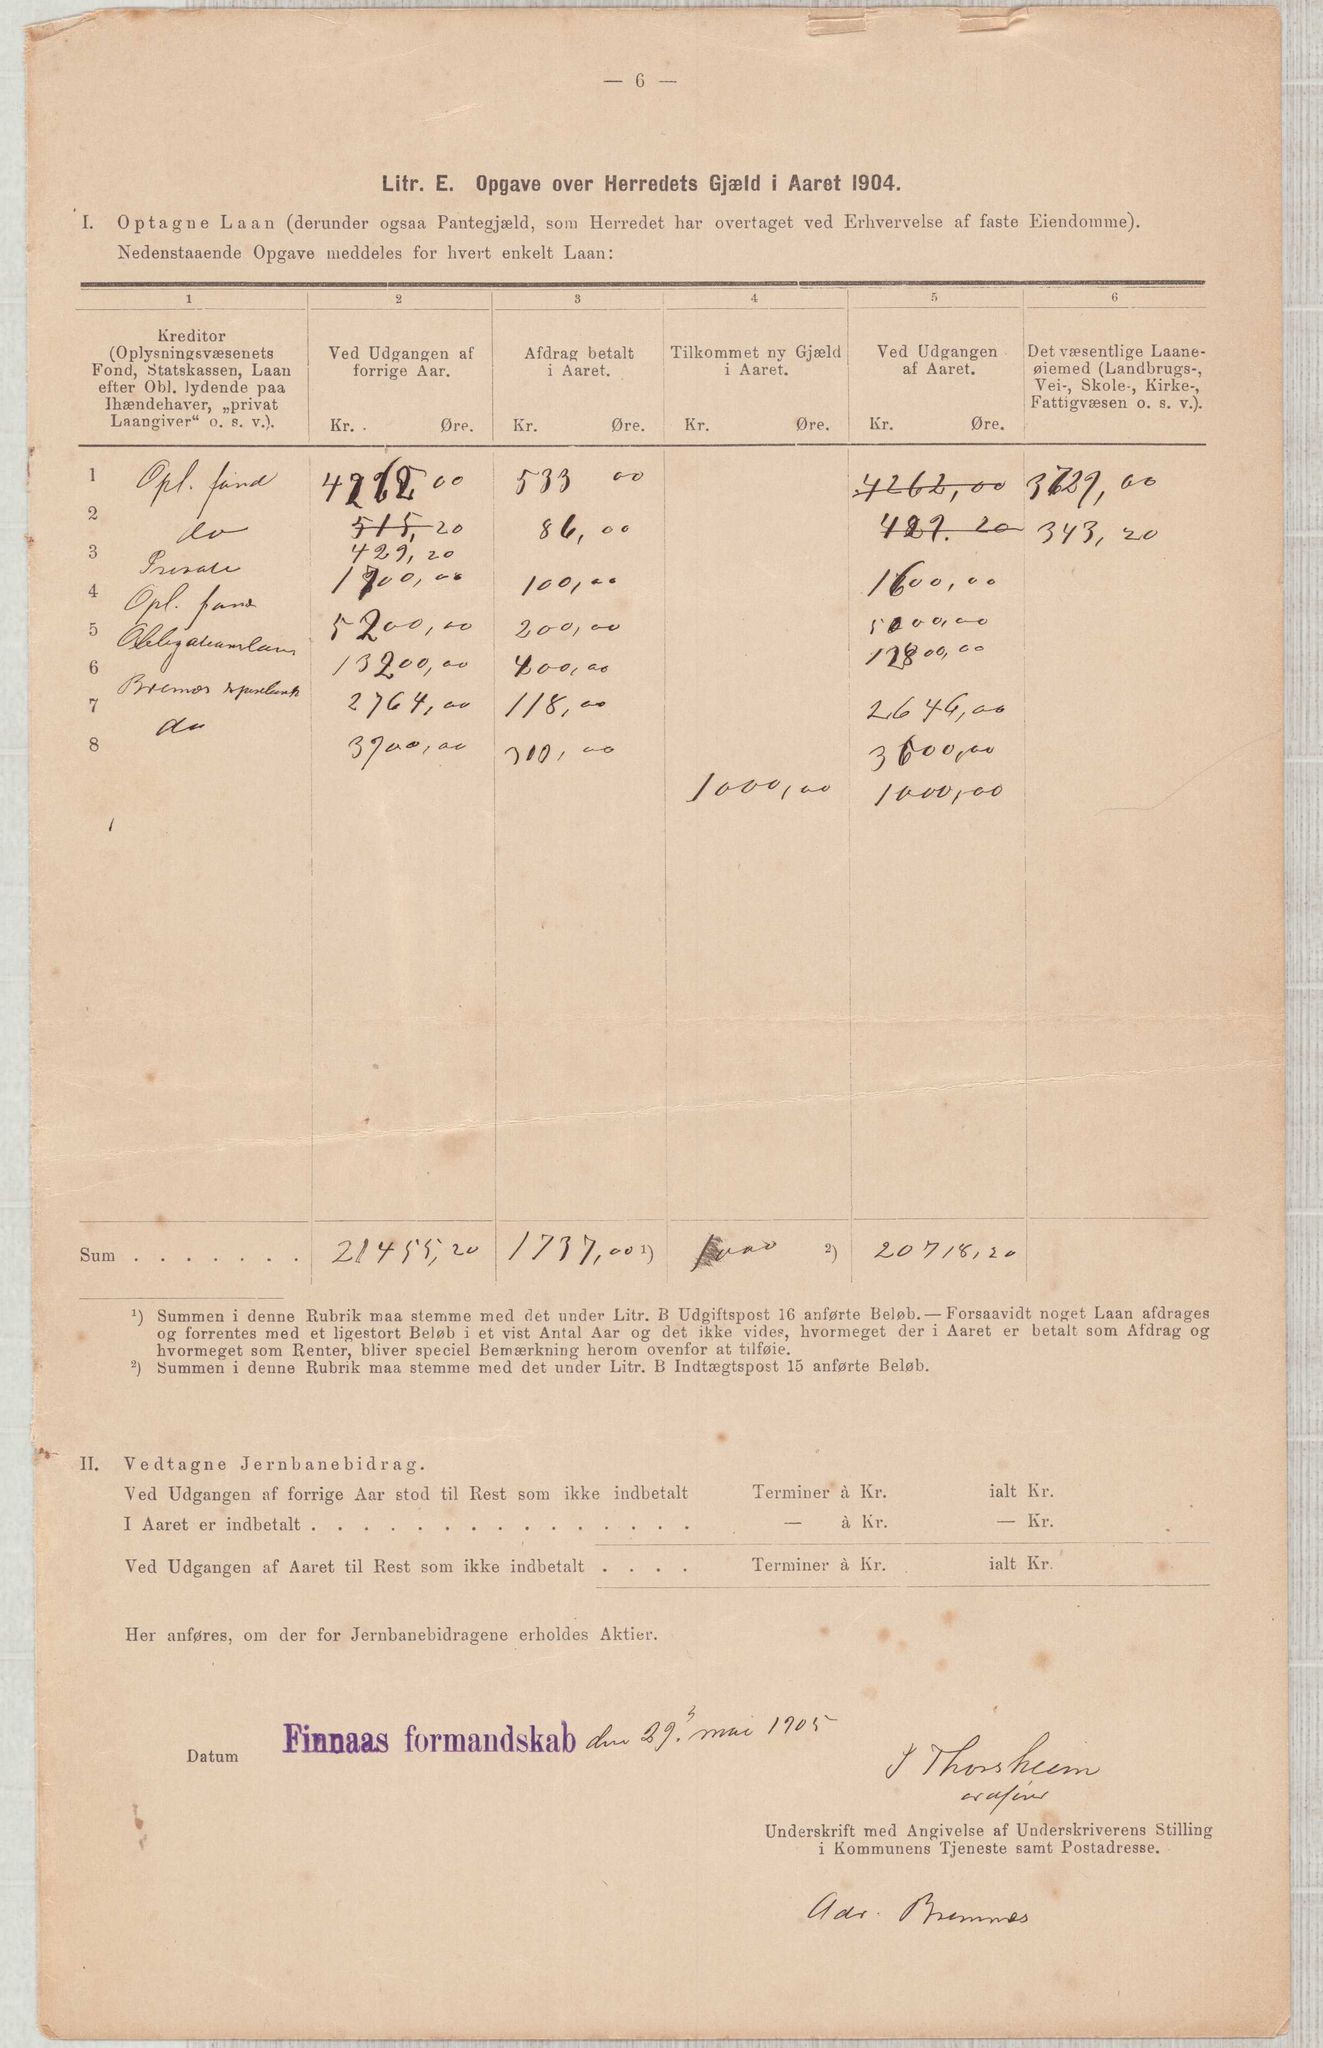 — 6 —
Litr. E. Opgave over Herredets Gjæld i Aaret 1904.
I. Optagne Laan (derunder ogsaa Pantegjæld, som Herredet har overtaget ved Erhvervelse af faste Eiendomme).
Nedenstaaende Opgave meddeles for hvert enkelt Laan:
1 2 3 4 5 6
Kreditor
(Oplysningsvæsenets
Fond, Statskassen, Laan
efter Obl. lydende paa
Ihændehaver, „privat
Laangiver" o. s. v.).
Ved Udgangen af
forrige Aar.
Kr. Øre.
Afdrag betalt
i Aaret.
Kr. Øre.
Tilkommet ny Gjæld
i Aaret.
Kr. Øre.
Ved Udgangen
af Aaret.
Kr. Øre.
Det væsentlige Laane-
øiemed (Landbrugs-,
Vei-, Skole-, Kirke-,
Fattigvæsen o. s. v.).
1 Opl. fond 4262,00 533 00 4262,00 3729,00
2 do 515,20 86,00 429.20 343,20
429,20
3 Private 1700,00 100,00 1600,00
4 Opl. fond 5200,00 200,00 5000,00
5 Obligationslaan 13200,00 400,00 12800,00
6 Bremnes sparebank 2764,00 118,00 2646,00
7 do 3900,00 300,00 3600,00
8 1000,00 1000,00
Sum . . . . . . . 21455,20 1737,00 1) 1000 2) 20718,20
1) Summen i denne Rubrik maa stemme med det under Litr. B Udgiftspost 16 anførte Beløb. — Forsaavidt noget Laan afdrages
og forrentes med et ligestort Beløb i et vist Antal Aar og det ikke vides, hvormeget der i Aaret er betalt som Afdrag og
hvormeget som Renter, bliver speciel Bemærkning herom ovenfor at tilføie.
2) Summen i denne Rubrik maa stemme med det under Litr. B Indtægtspost 15 anførte Beløb.
II. Vedtagne Jernbanebidrag.
Ved Udgangen af forrige Aar stod til Rest som ikke indbetalt Terminer à Kr. ialt Kr.
I Aaret er indbetalt . . . . . . . . . . . . . . . . — à Kr. — Kr.
Ved Udgangen af Aaret til Rest som ikke indbetalt . . . . Terminer à Kr. ialt Kr.
Her anføres, om der for Jernbanebidragene erholdes Aktier.
Datum Finnaas formandskab den 29. mai 1905
Thorsheim
ordfører
Underskrift med Angivelse af Underskriverens Stilling
i Kommunens Tjeneste samt Postadresse.
Adr. Bremnes